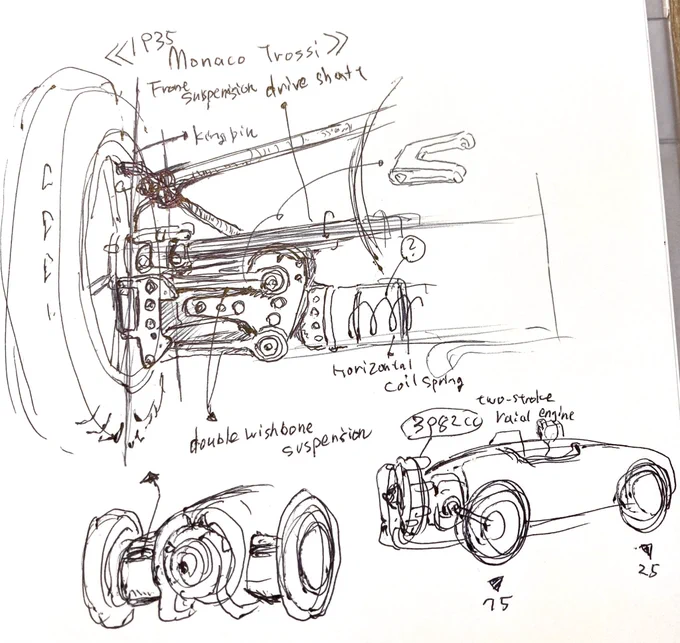 ≪1935
Monaco Trossi≫
Front
suspension drive shaft
kingpin
?
Horizontal
coil spring
double wishbone
suspension
two-stroke
raial engine
3982cc
75
25